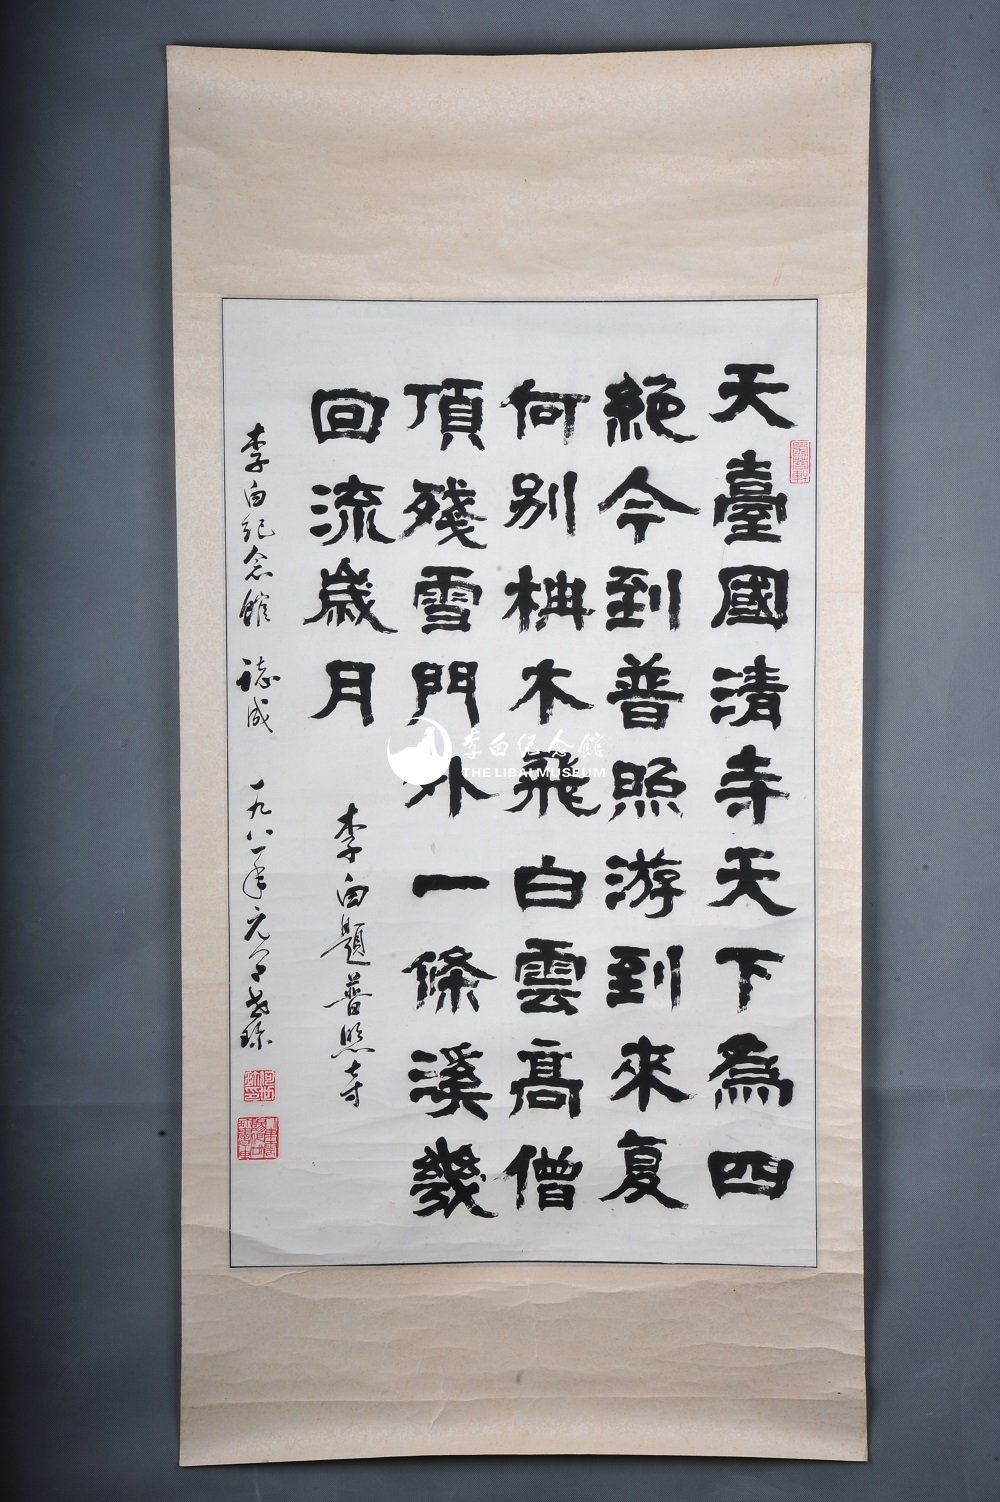 天臺國清寺天下為四
絶今到普照游到來復
何别枏木飛白雲高僧
頂殘雪門外一條溪幾
回流歲月
李白題普照寺
李白紀念館 誌成 一九八一年元月
李白纪念館
THE LIBAI MUSEUM